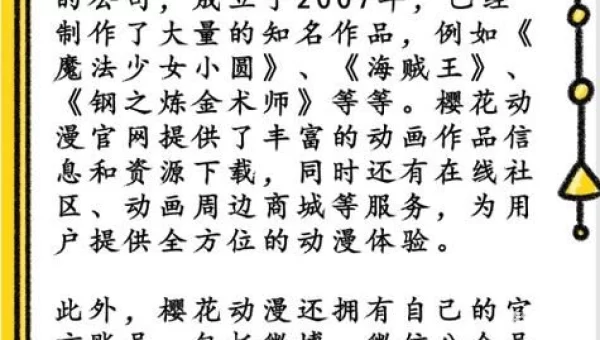 的公司，成立于2007年，已经
制作了大量的知名作品，例如《
魔法少女小圆》、《海贼王》、
《钢之炼金术师》等等。樱花动
漫官网提供了丰富的动画作品信
息和资源下载，同时还有在线社
区、动画周边商城等服务，为用
户提供全方位的动漫体验。
此外，樱花动漫还拥有自己的官
方账号，包括微博、微信公众号